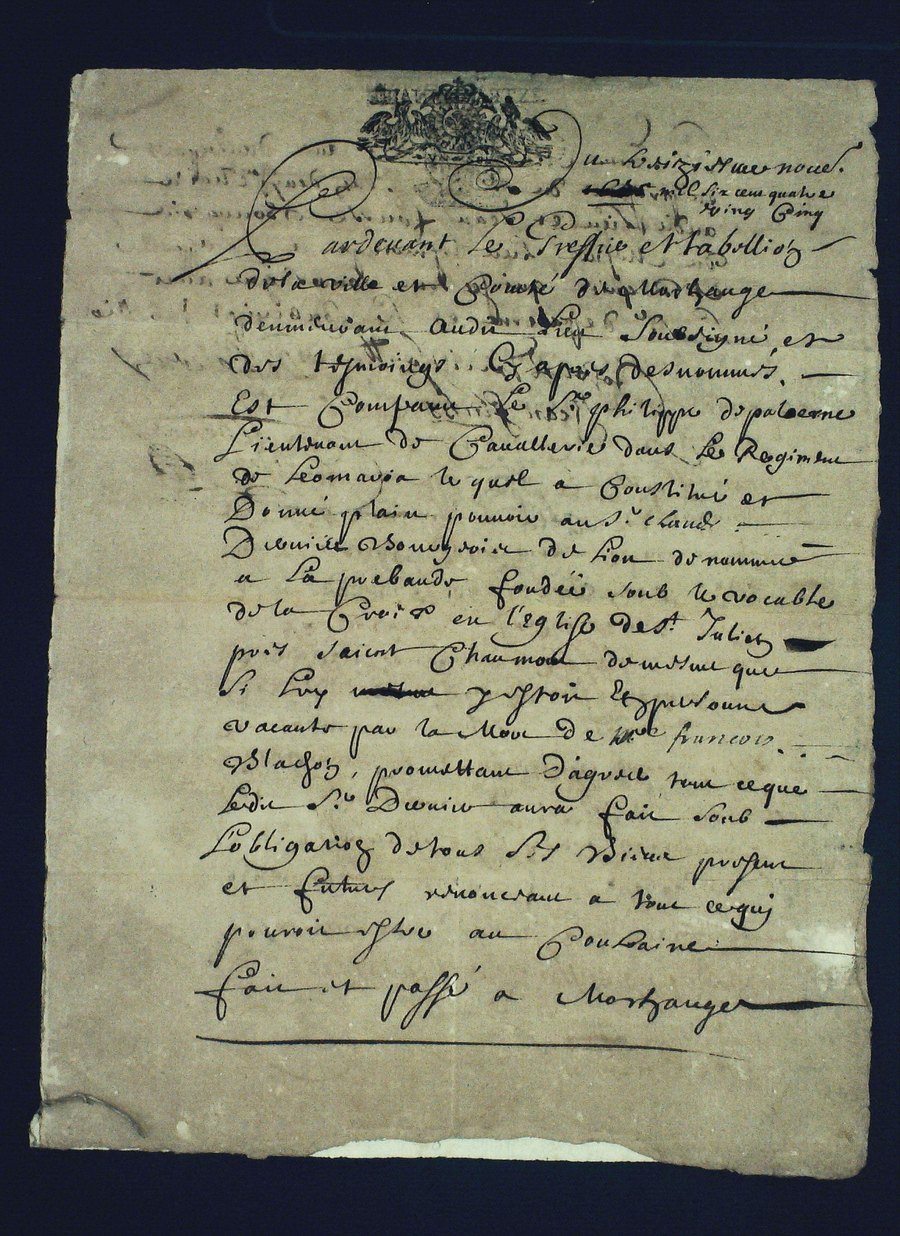 Du treiziesme nouê.
mil six cent quatre
vingt Cinq
Pardevant Le Greffier et tabellion
de la ville et Comté de Morhange
demeurant audit lieu soubsigné et
des tesmoings Cy apres desnommés.
Est Comparu Le Sr. philippe depalerne
Lieutenant de Cavallerie dans Le Regiment
de le quel a Constitué et
Donné plain pouvoir au Sr. claude
Bourgeois de Lion de nommer
a La prebande fondéé soub le vocable
de la Croix en l'Eglise de St. Julien
pres saient Chaumon de mesme que
si Luy y estoit En personne
vacante par la Mort de Mre francois
Blachon, promettant D'agreer tout ceque
Ledit Sr. aura fait soub
L'obligation de tous ses Biens present
et futurs renonceant a tout ce quy
pouroit estre au Contraire
fait et passé a Morhange